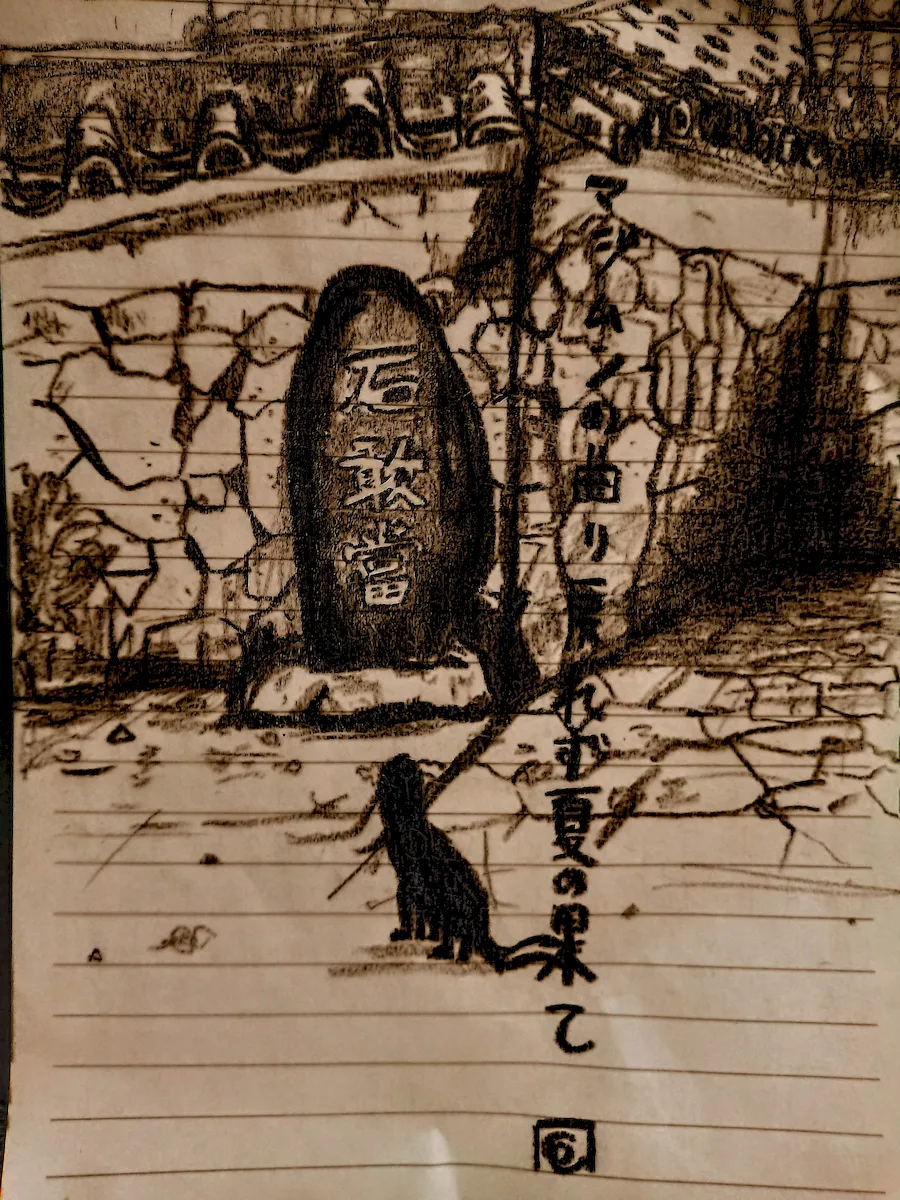 マジムンの曲り戻れず夏の果て
6
石敢當